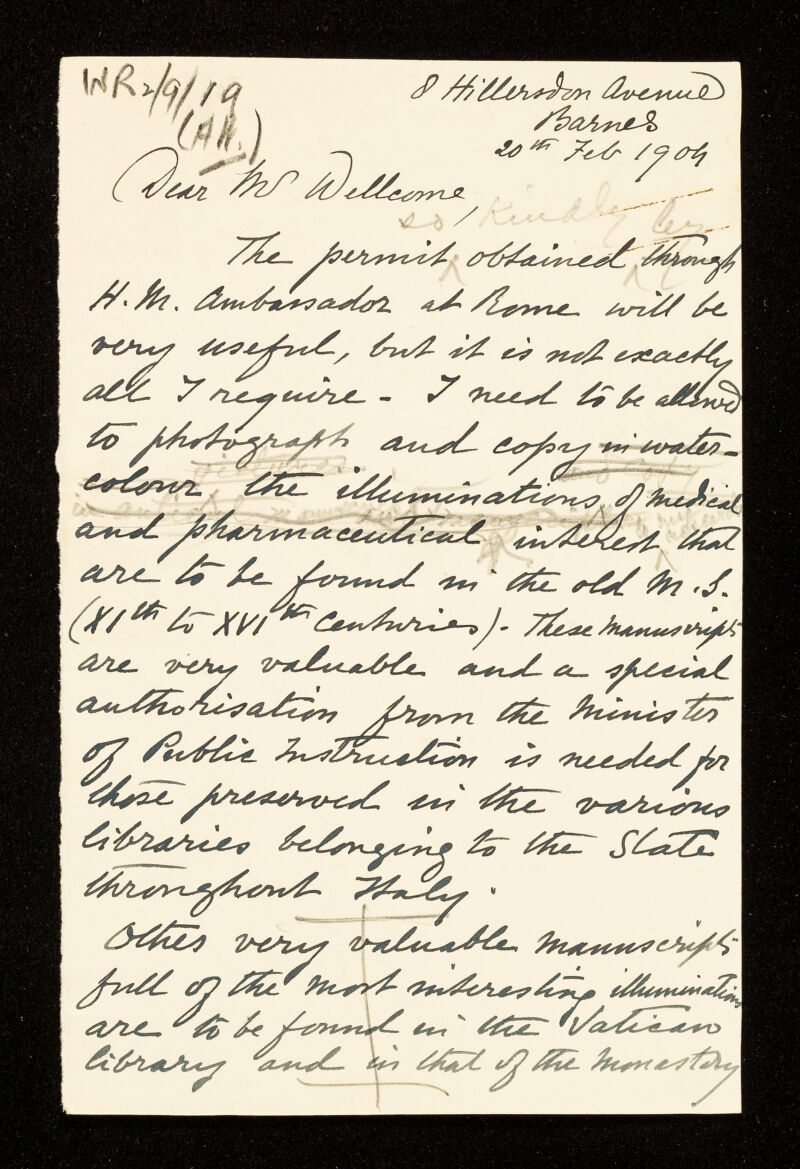 WR2/9/19
(AN.)
8 Hillersdon Avenue
Barnes
20th Feb 1904
Dear Mr Wellcome,
so kindly
The permit obtained through
H.M. Ambassador at Rome will be
very useful, but it is not exactly
all I require - I need to be allowed
to photograph and copy in water-
colour the illuminations of medical
and pharmaceutical interest that
are to be found in the old M.S.
(XIth to XVIth Centuries). These manuscripts
are very valuable and a special
authorisation from the Minister
of Public Instruction is needed for
those preserved in the various
libraries belonging to the State
throughout Italy.
Other very valuable manuscripts
full of the most interesting illuminations
are to be found in the Vatican
library and in that of the Monastery